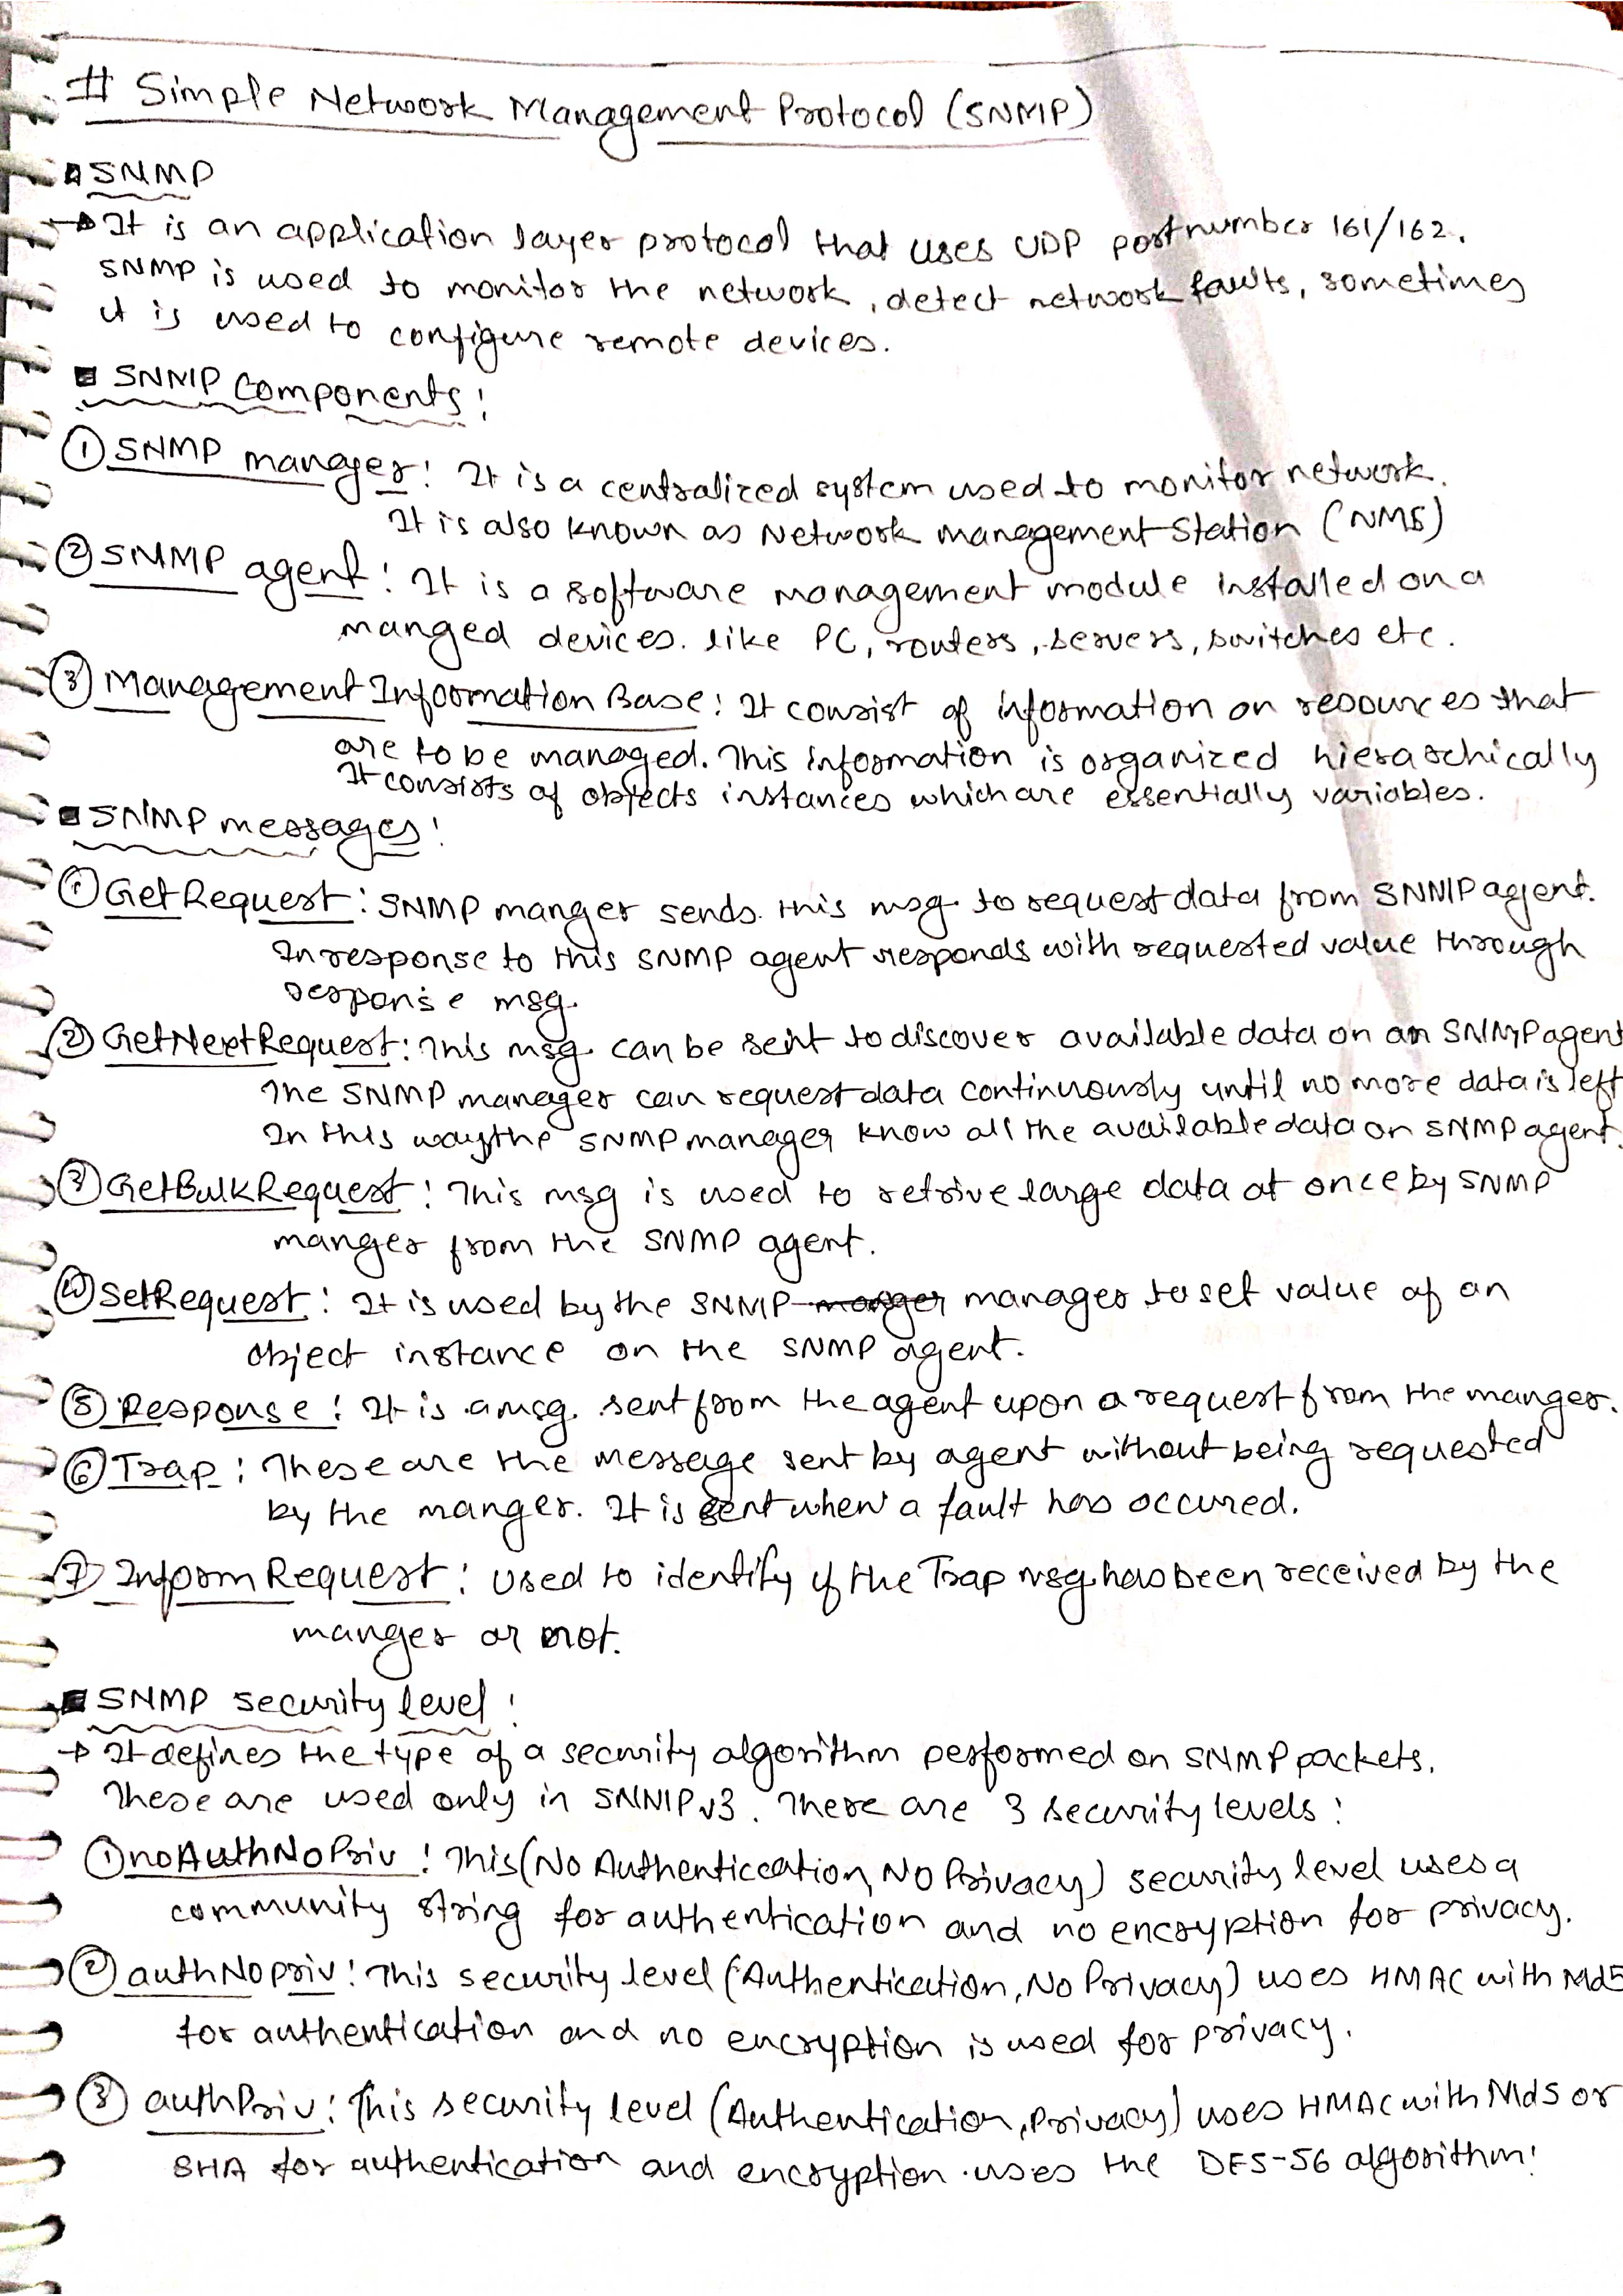 # Simple Network Management Protocol (SNMP)
SNMP
→ It is an application layer protocol that uses UDP port number 161/162.
SNMP is used to monitor the network, detect network faults, sometimes
it is used to configure remote devices.
SNMP components:
① SNMP manager: It is a centralized system used to monitor network.
It is also known as Network Management Station (NMS)
② SNMP agent: It is a software management module installed on a
manged devices. like PC, routers, servers, switches etc.
③ Management Information Base: It consist of information on resources that
are to be managed. This information is organized hierarchically
It consists of objects instances which are essentially variables.
SNMP messages:
① GetRequest: SNMP manger sends this msg. to request data from SNMP agent.
In response to this SNMP agent responds with requested value through
response msg.
② GetNextRequest: This msg. can be sent to discover available data on an SNMP agent
The SNMP manager can request data continuously until no more data is left
In this way the SNMP manager know all the available data on SNMP agent.
③ GetBulkRequest: This msg is used to retrive large data at once by SNMP
manger from the SNMP agent.
④ SetRequest: It is used by the SNMP manger manager to set value of an
object instance on the SNMP agent.
⑤ Response: It is a msg. sent from the agent upon a request from the manger.
⑥ Trap: These are the message sent by agent without being requested
by the manger. It is sent when a fault has occured.
⑦ InformRequest: used to identify if the Trap msg. has been received by the
manger or not.
SNMP security level:
→ It defines the type of a security algorithm performed on SNMP packets.
These are used only in SNMPv3. There are 3 security levels:
① noAuthNoPriv: This (No Authentication, No Privacy) security level uses a
community string for authentication and no encryption for privacy.
② authNopriv: This security level (Authentication, No Privacy) uses HMAC with Md5
for authentication and no encryption is used for privacy.
③ authPriv: This security level (Authentication, Privacy) uses HMAC with Md5 or
SHA for authentication and encryption uses the DES-56 algorithm.